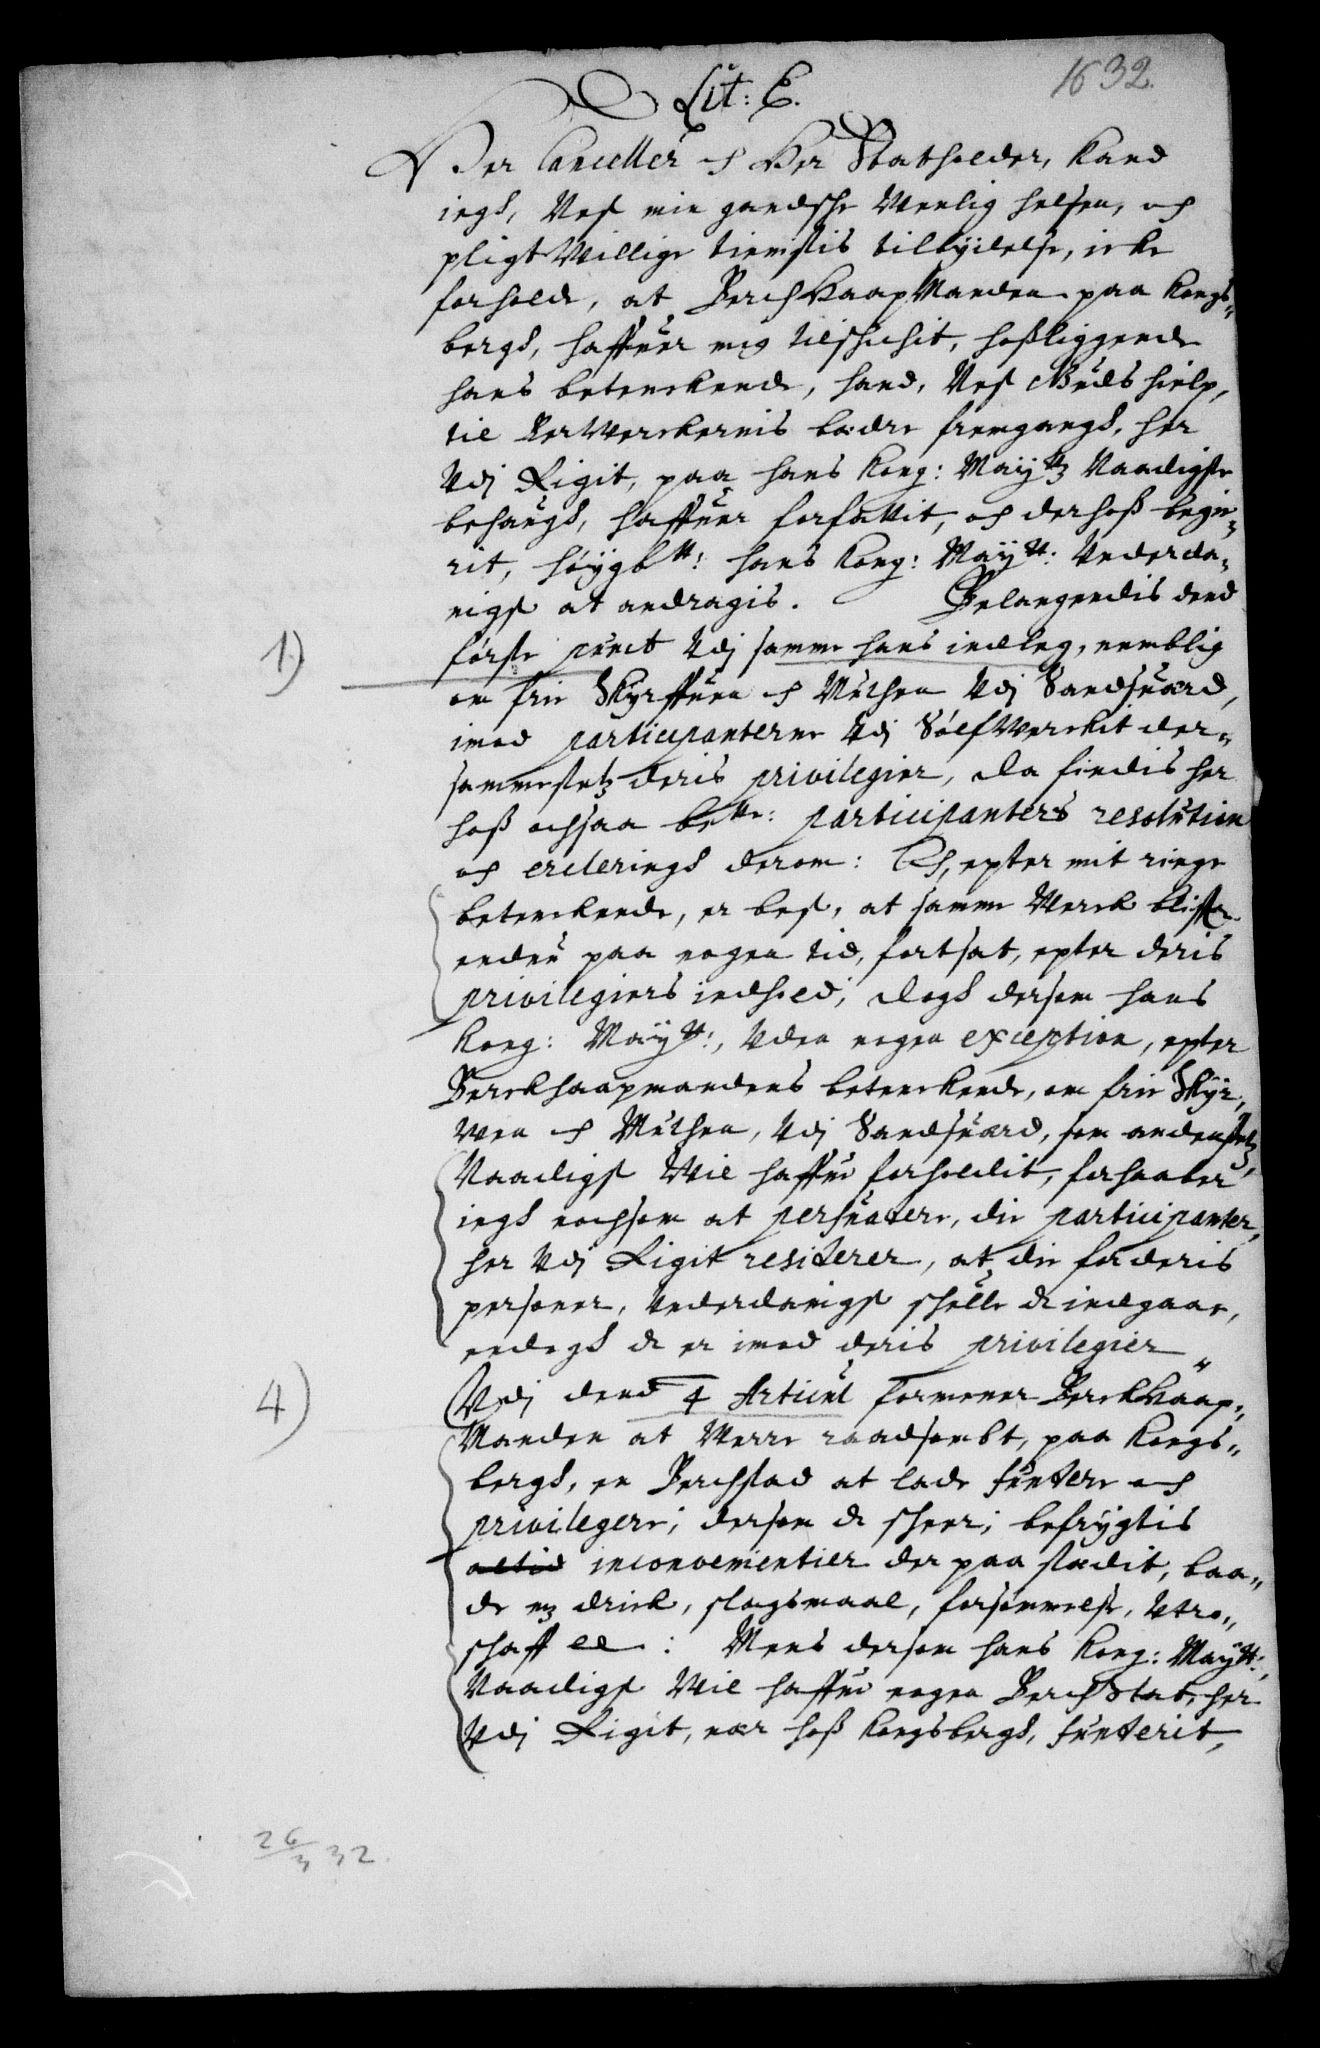 1632.
Lit: E.
Her Canceller och Her Statholder, kand
iegh, Nest min gandsche Venlig helsen, och
pligt Villige tienistis tilbydelse, icke
forholde, at BerchHaapManden paa Kongs¬
bergh, haffuer mig tilschichit, hosliggende
hans betenckende, hand, Nest Guds hielp,
til BerVerckernis bædre fremgangh, her
Vdj Rigit, paa hans Kong: Maytz Naadigste
behaugh, haffuer forfattit, och derhoß begie¬
rit, höygbtt: hans Kong: Maytt: Vnderda¬
nigst at andragis. Belangendis dend
1) förste punct Vdj samme hans indleg, nemblig
om frie Skyrffuen och Muthen Vdj Sandsuærd,
imod participanterne Vdj SölfVerckit der¬
sammestetz deris privilegier, da findis her
hoß ochsaa bete: participanters resolution
och erclæringh derom: Och, epter mit ringe
betenckende, er best, at samme Verck bliffuer
endnu paa nogen tid, fortsat, epter deris
privilegiers indhold; dogh dersom hans
Kong: Maytt:, Vden nogen exception, epter
Berckhaapmandens betenckende, om frie Skyr¬
wen och Muthen, Vdj Sandsuærd, som andenstetz,
Naadigst Vil haffue forholdit, forhaaber
iegh nochsom at persuadere, die participanter,
her Vdj Rigit residerer, at die for deris
personer, Vnderdanigst schulle de indgaae,
endogh de er imod deris privilegier„
4) Vdj dend 4 Articul formener BerckHaap¬
Manden at Verre raadsombt, paa Kongs¬
bergh, en Berchstad at lade funderе och
privilegere; dersom de scheer; befrygtis
altid inconvenientier der paa stædit, baa¬
de mz drick, slagsmaal, forsømmelse, Vtro¬
schaff etc: Mens dersom hans Kong: Maytt:,
Naadigst Vil haffue nogen BerchStat, her
Vdj Rigit, nær hoß Kongsbergh, funderit,
26/3 32.